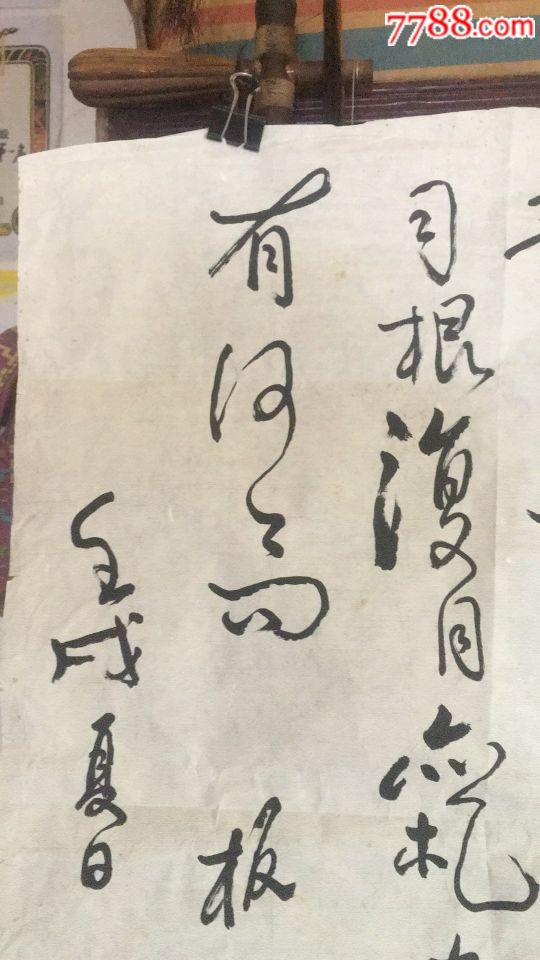 7788.com
同根復同氣
有何高 板
壬戌夏日